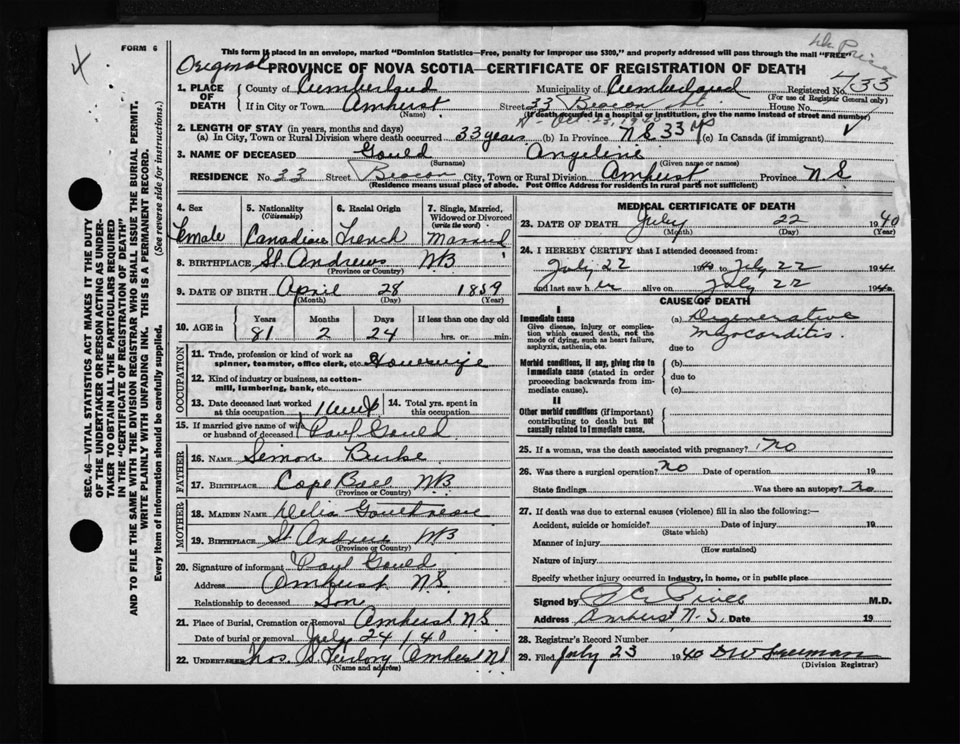 FORM 6
This form if placed in an envelope, marked "Dominion Statistics—Free, penalty for improper use $300," and properly addressed will pass through the mail "FREE"
Dr Price
Original PROVINCE OF NOVA SCOTIA—CERTIFICATE OF REGISTRATION OF DEATH
1. PLACE OF DEATH County of Cumberland Municipality of Cumberland Registered No. 733
(For use of Registrar General only)
If in City or Town Amherst Street 33 Beacon St. House No.
(Name) (If death occurred in a hospital or institution, give the name instead of street and number)
2. LENGTH OF STAY (in years, months and days)
(a) In City, Town or Rural Division where death occurred 33 years (b) In Province N.S. 33 (c) In Canada (if immigrant)
3. NAME OF DECEASED Gould Angeline
(Surname) (Given name or names)
RESIDENCE No. 33 Street Beacon City, Town or Rural Division Amherst Province N.S
(Residence means usual place of abode. Post Office Address for residents in rural parts not sufficient)
4. Sex 5. Nationality (Citizenship) 6. Racial Origin 7. Single, Married, Widowed or Divorced (write the word)
Female Canadian French Married
8. BIRTHPLACE St. Andrews NB
(Province or Country)
9. DATE OF BIRTH April 28 1859
(Month) (Day) (Year)
10. AGE in Years Months Days If less than one day old
81 2 24 hrs. or min.
OCCUPATION
11. Trade, profession or kind of work as spinner, teamster, office clerk, etc. Housewife
12. Kind of industry or business, as cotton-mill, lumbering, bank, etc.
13. Date deceased last worked at this occupation 14. Total yrs. spent in this occupation
15. If married give name of wife or husband of deceased Paul Gould
FATHER
16. NAME Simon Burke
17. BIRTHPLACE Cape Bald NB
(Province or Country)
MOTHER
18. MAIDEN NAME Delia
19. BIRTHPLACE St Andrews NB
(Province or Country)
20. Signature of informant Paul Gould
Address Amherst N.S.
Relationship to deceased Son
21. Place of Burial, Cremation or Removal Amherst N.S.
Date of burial or removal July 24/40
22. Undertaker Thos. Amherst N.S.
(Name and address)
MEDICAL CERTIFICATE OF DEATH
23. DATE OF DEATH July 22 1940
(Month) (Day) (Year)
24. I HEREBY CERTIFY that I attended deceased from:
July 22 1940 to July 22 1940
and last saw her alive on July 22 1940
CAUSE OF DEATH
I
Immediate cause (a) Degenerative Myocarditis
Give disease, injury or complication which caused death, not the mode of dying, such as heart failure, asphyxia, asthenia, etc.
due to
Morbid conditions, if any, giving rise to immediate cause (stated in order proceeding backwards from immediate cause).
(b)
due to
(c)
II
Other morbid conditions (if important) contributing to death but not causally related to immediate cause.
25. If a woman, was the death associated with pregnancy? No
26. Was there a surgical operation? No Date of operation 19
State findings Was there an autopsy? No
27. If death was due to external causes (violence) fill in also the following:—
Accident, suicide or homicide? Date of injury 19
(State which)
Manner of injury
(How sustained)
Nature of injury
Specify whether injury occurred in industry, in home, or in public place
Signed by Price M.D.
Address Amherst N.S. Date 19
28. Registrar's Record Number
29. Filed July 23 1940 DW Freeman
(Division Registrar)
SEC. 46—VITAL STATISTICS ACT MAKES IT THE DUTY
OF THE UNDERTAKER OR PERSON ACTING AS UNDER-
TAKER TO OBTAIN ALL THE PARTICULARS REQUIRED
IN THE "CERTIFICATE OF REGISTRATION OF DEATH"
AND TO FILE THE SAME WITH THE DIVISION REGISTRAR WHO SHALL ISSUE THE BURIAL PERMIT.
WRITE PLAINLY WITH UNFADING INK. THIS IS A PERMANENT RECORD.
Every item of information should be carefully supplied. (See reverse side for instructions.)